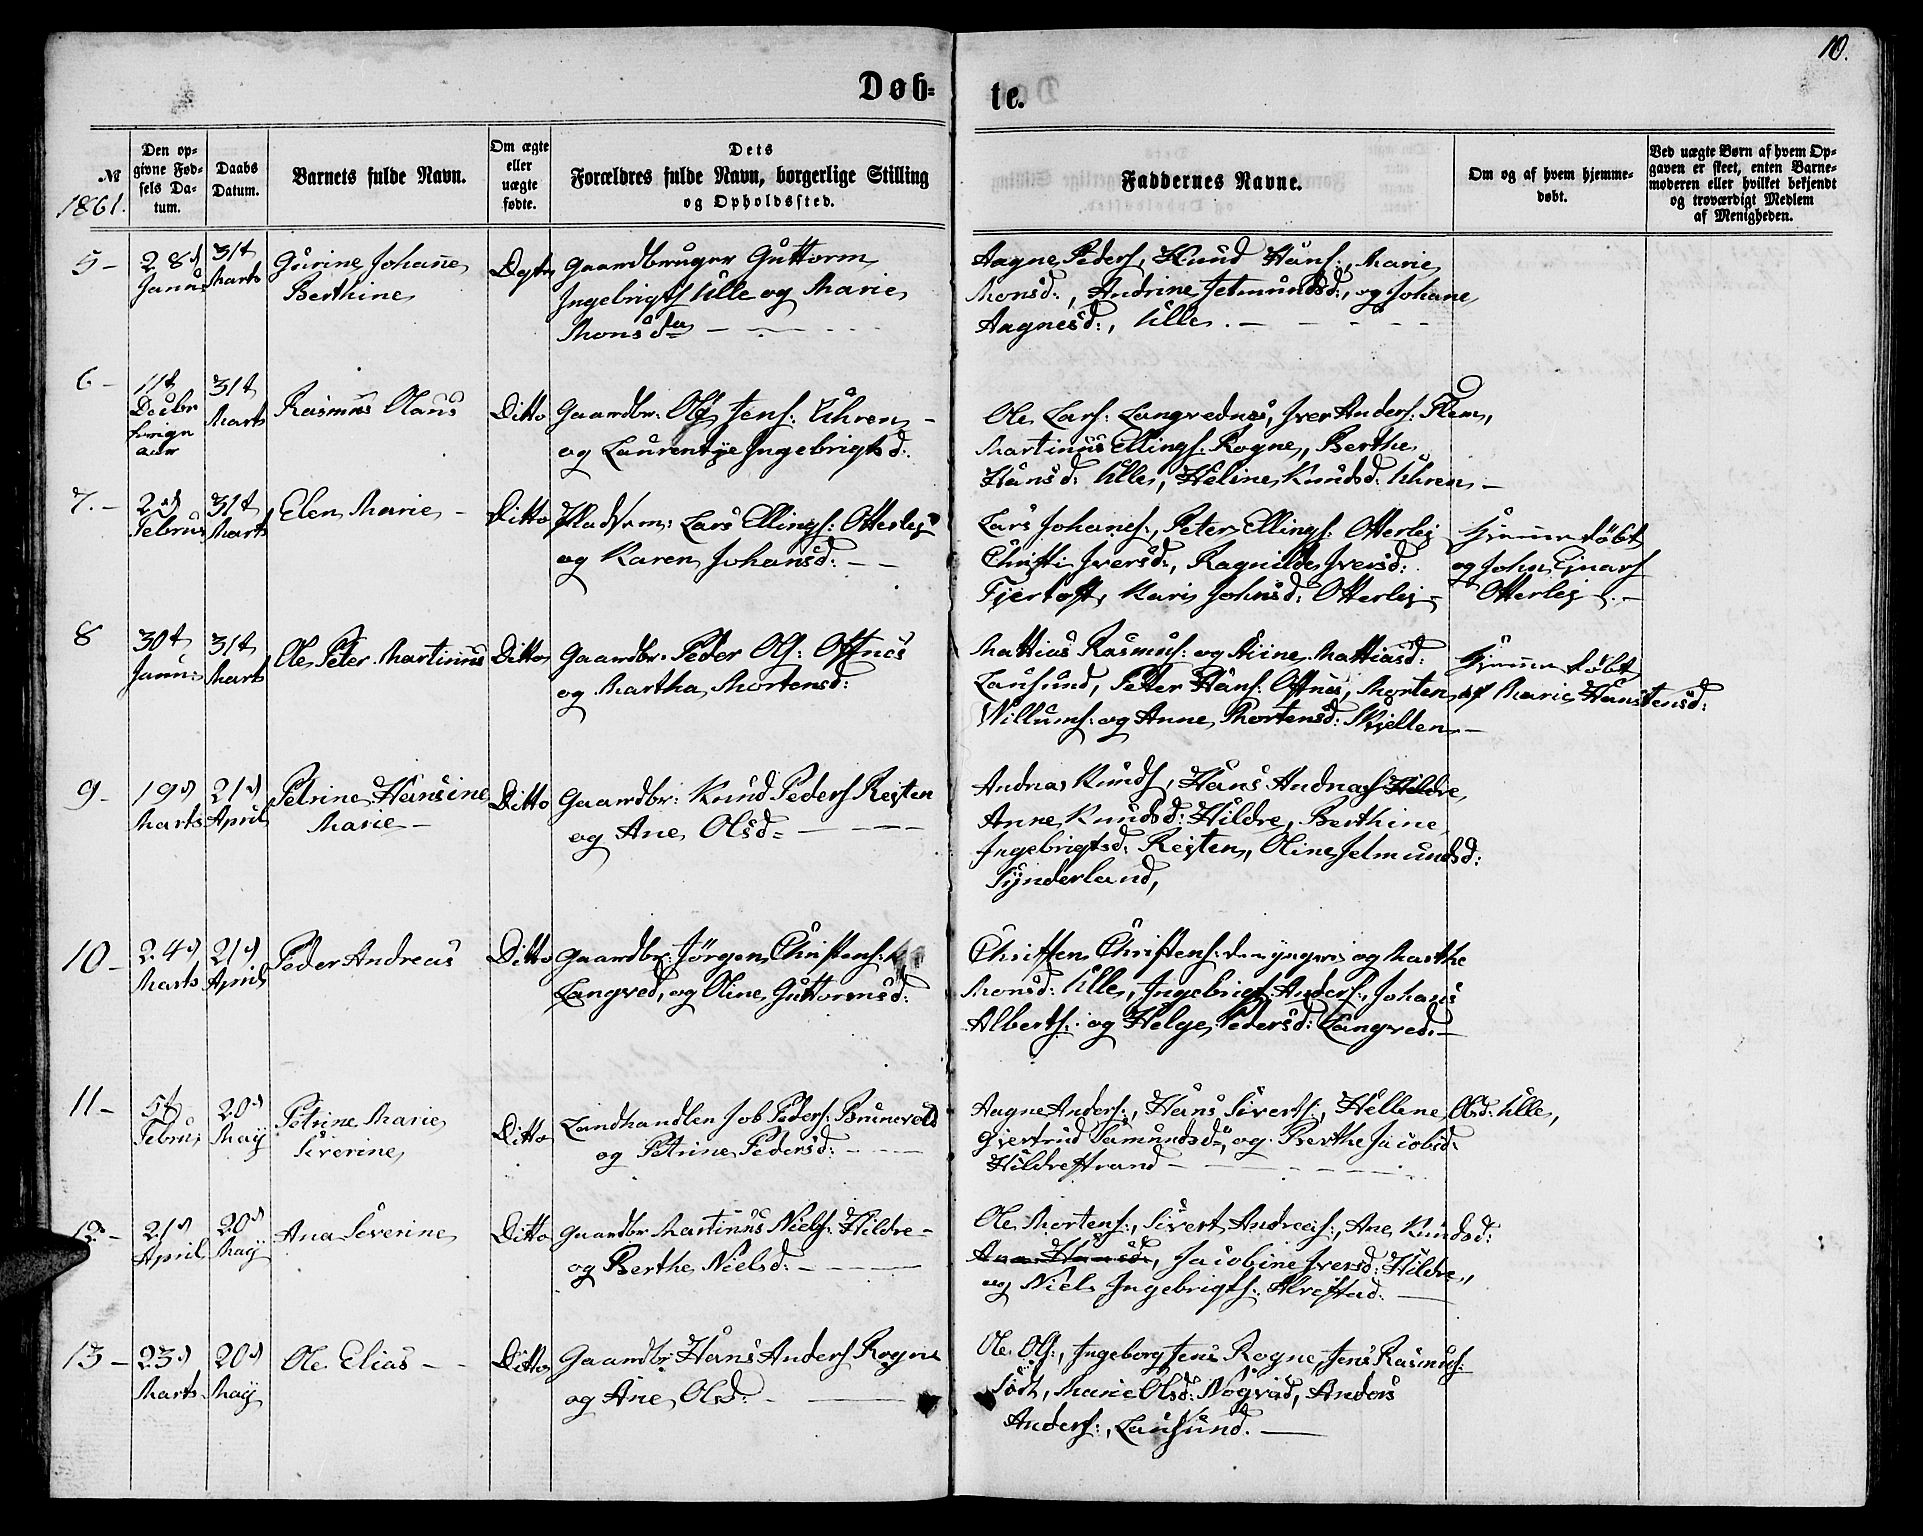 10.
Døb-
te.
№
1861.
Den op-
givne Fød-
sels Da-
tum.
Daabs
Datum.
Barnets fulde Navn.
Om ægte
eller
uægte
fødte.
Dets
Forældres fulde Navn, borgerlige Stilling
og Opholdssted.
Faddernes Navne.
Om og af hvem hjemme-
døbt.
Ved uægte Børn af hvem Op-
gaven er skeet, enten Barne-
moderen eller hvilket bekjendt
og troværdigt Medlem
af Menigheden.
5 -
28d
Janu
31t
Marts
Gurine Johane
Berthine
Gaardbruger Guttorm
Ingebrigts Ulle og Marie
Monsdtr
Aagne Peders, Knud Hans:, Marie
Monsd:, Andrine Jetmundsd:, og Johane
Aagnesd:, Ulle. -
6 -
11t
Decbr
forige
aar
31t
Marts
Rasmus Olaus
Ditto
Gaardbr: Ols Jens: Uhren -
og Laurentze Ingebrigtsd:
Ole Lars: Langvednes, Iver Anders: Flem,
Martinus Ellings: Rogne, Berthe
Hansd: Ulle, Heline Knudsd: Uhren -
7. -
2d
Februr
31t
Marts
Elen Marie -
Ditto
Lars Ellings: Otterlej
og Karen Johansd: - -
Lars Johanes:, Peter Ellings: Otterlej
Christi Iversd:, Ragnilde Iversd:
Fjertoft, Kari Johnsd: Otterlej -
hjemmedøbt
og John Ejnars
Otterlej -
8
30t
Janu:
31t
Marts
Ole Peter Martinus
Ditto
Gaardbr. Peder Ols: Ofsnes
og Martha Mortensd:
Mattias Rasmus: og Stine Mattiasd:
Lausund, Peter Hans: Ofsnes, Morten
Willums: og Anne Mortensd: Skjelten -
hjemmedøbt
af Marie Haustensd:
9 -
19d
Marts
21d
April
Petrine Hansine
Marie -
Ditto
Gaardbr: Knud Peders Rejten
og Ane Olsd= -
Andreas Knuds, Hans Andreas Hildre,
Anne Knudsd: Hildre, Berthine
Ingebrigtsd: Rejten, Oline Jelmundsd:
Synderland,
10 -
24d
Marts
21d
April
Peder Andreas
Ditto
Gaardbr: Jörgen Christens:
Langved, og Oline Guttormsd:
Christen Christens: den yngre og Marthe
Monsd: Ulle, Ingebrigt Anders:, Johans
Alberts: og Helge Pedersd: Langved. -
11 -
5t
Februr
20d
May
Petrine Marie
Siverine
Ditto
Landhandler Job Peders: Brunevold
og Petrine Pedersd: -
Aagne Anders:, Hans Siverts:, Hellene Olsd: Ulle,
Gjertrud Samundsdr, og Berthe Jacobsd:
Hildrestrand -
12 -
21d
April
20d
May
Ana Severine
Ditto
Gaardbr Martinus Niels: Hildre -
og Berthe Nielsd: -
Ole Mortens:, Sivert Andreas:, Ane Knudsd:
Ana Hansd:, Jacobine Iversd: Hildre,
og Niels Ingebrigts: Alvestad. -
13 -
23d
Marts
20d
May
Ole Elias -
Ditto
Gaardbr Hans Anders Rogne
og Ane Olsd: -
Ole Ols:, Ingeborg Jens Rogne, Jens Rasmus:
Marie Olsd: Nogvad, Anders
Anders:, Lausund. -